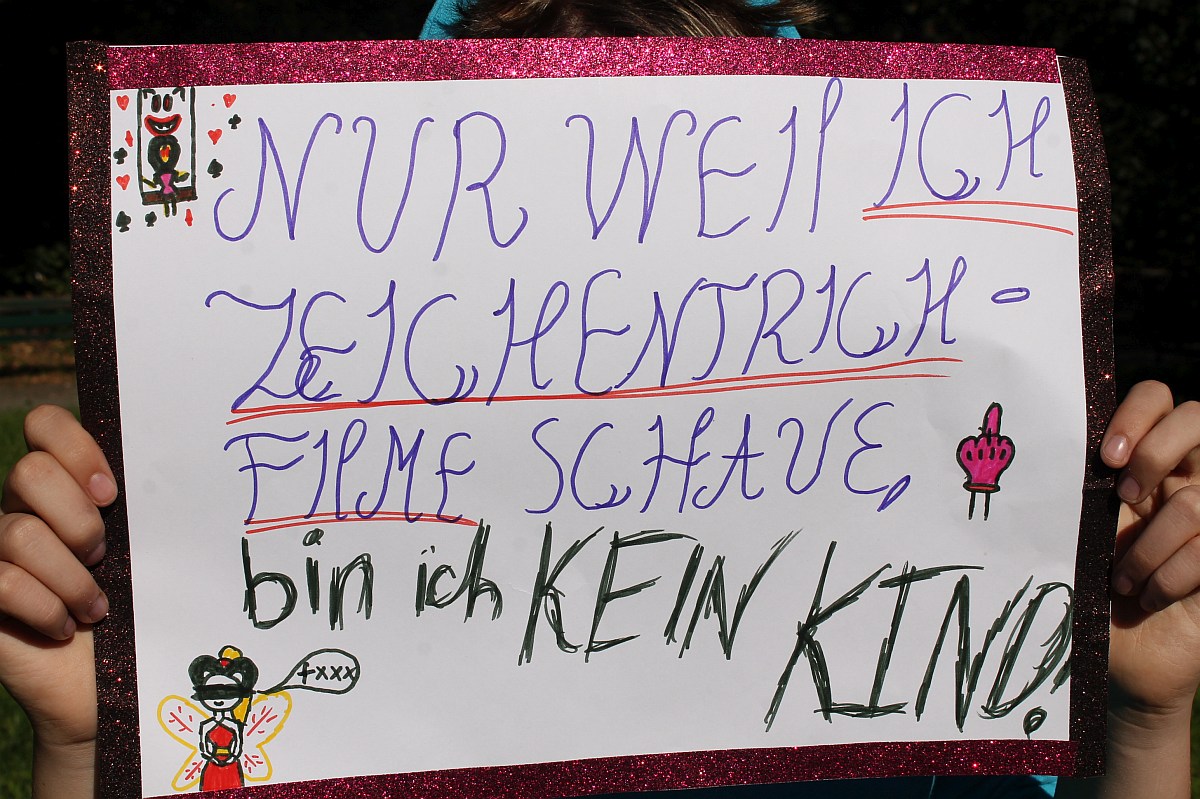 NUR WEIL ICH
ZEICHENTRICK-
FILME SCHAUE,
bin ich KEIN KIND!
fxxx